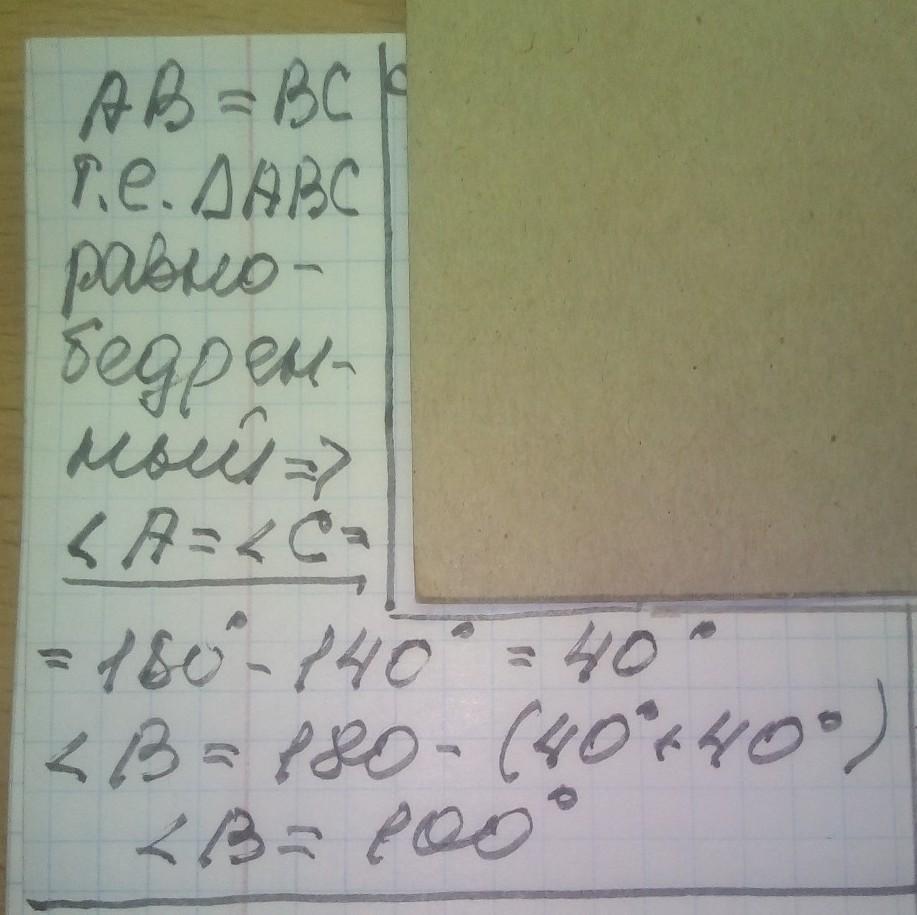 AB = BC
т.е. ΔABC
равно-
бедрен-
ный =>
<A = <C =
= 180° - 140° = 40°
<B = 180 - (40° + 40°)
<B = 100°